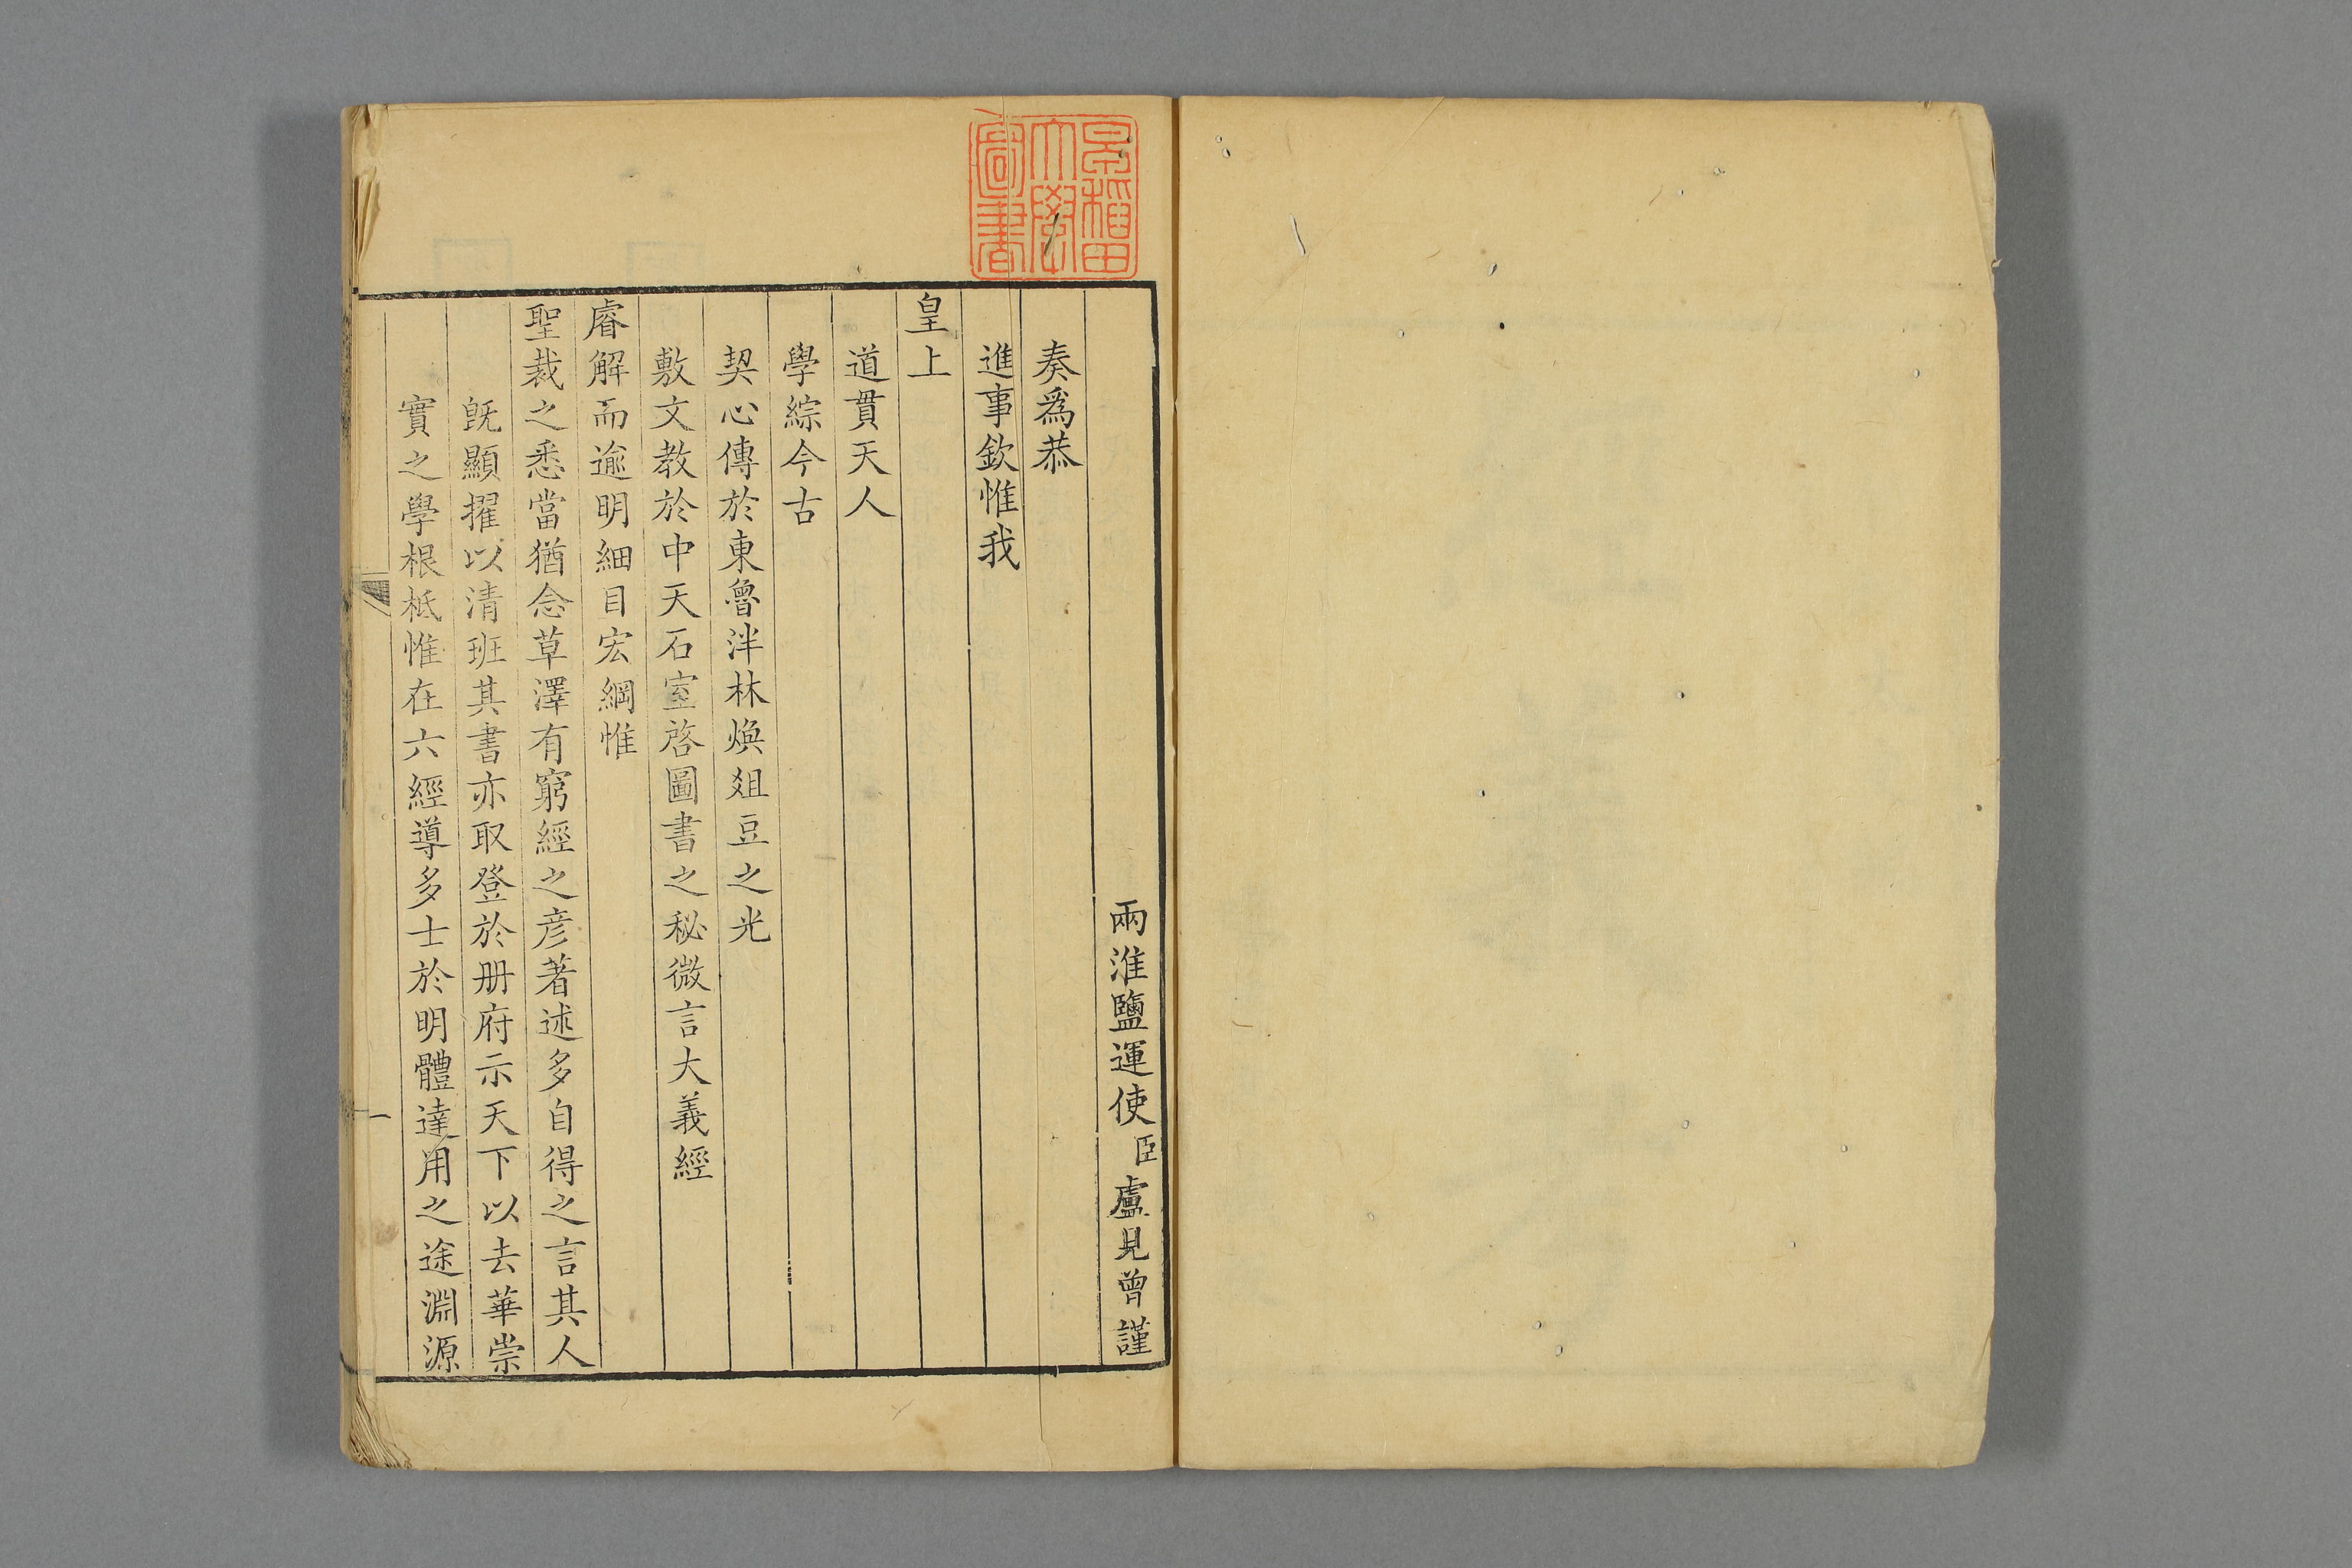 早稲田
大學
圖書
兩淮鹽運使臣盧見曾謹
奏爲恭
進事欽惟我
皇上
道貫天人
學綜今古
契心傳於東魯泮林煥爼豆之光
敷文教於中天石室啓圖書之秘微言大義經
睿解而逾明細目宏綱惟
聖裁之悉當猶念草澤有窮經之彦著述多自得之言其人
旣顯擢以清班其書亦取登於册府示天下以去華崇
實之學根柢惟在六經導多士於明體達用之途淵源
一